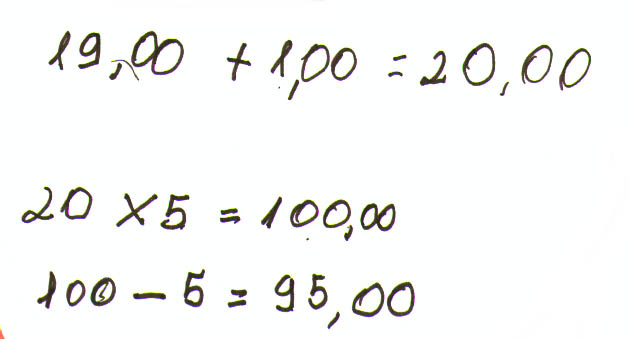 19,00 + 1,00 = 20,00
20 x 5 = 100,00
100 - 5 = 95,00